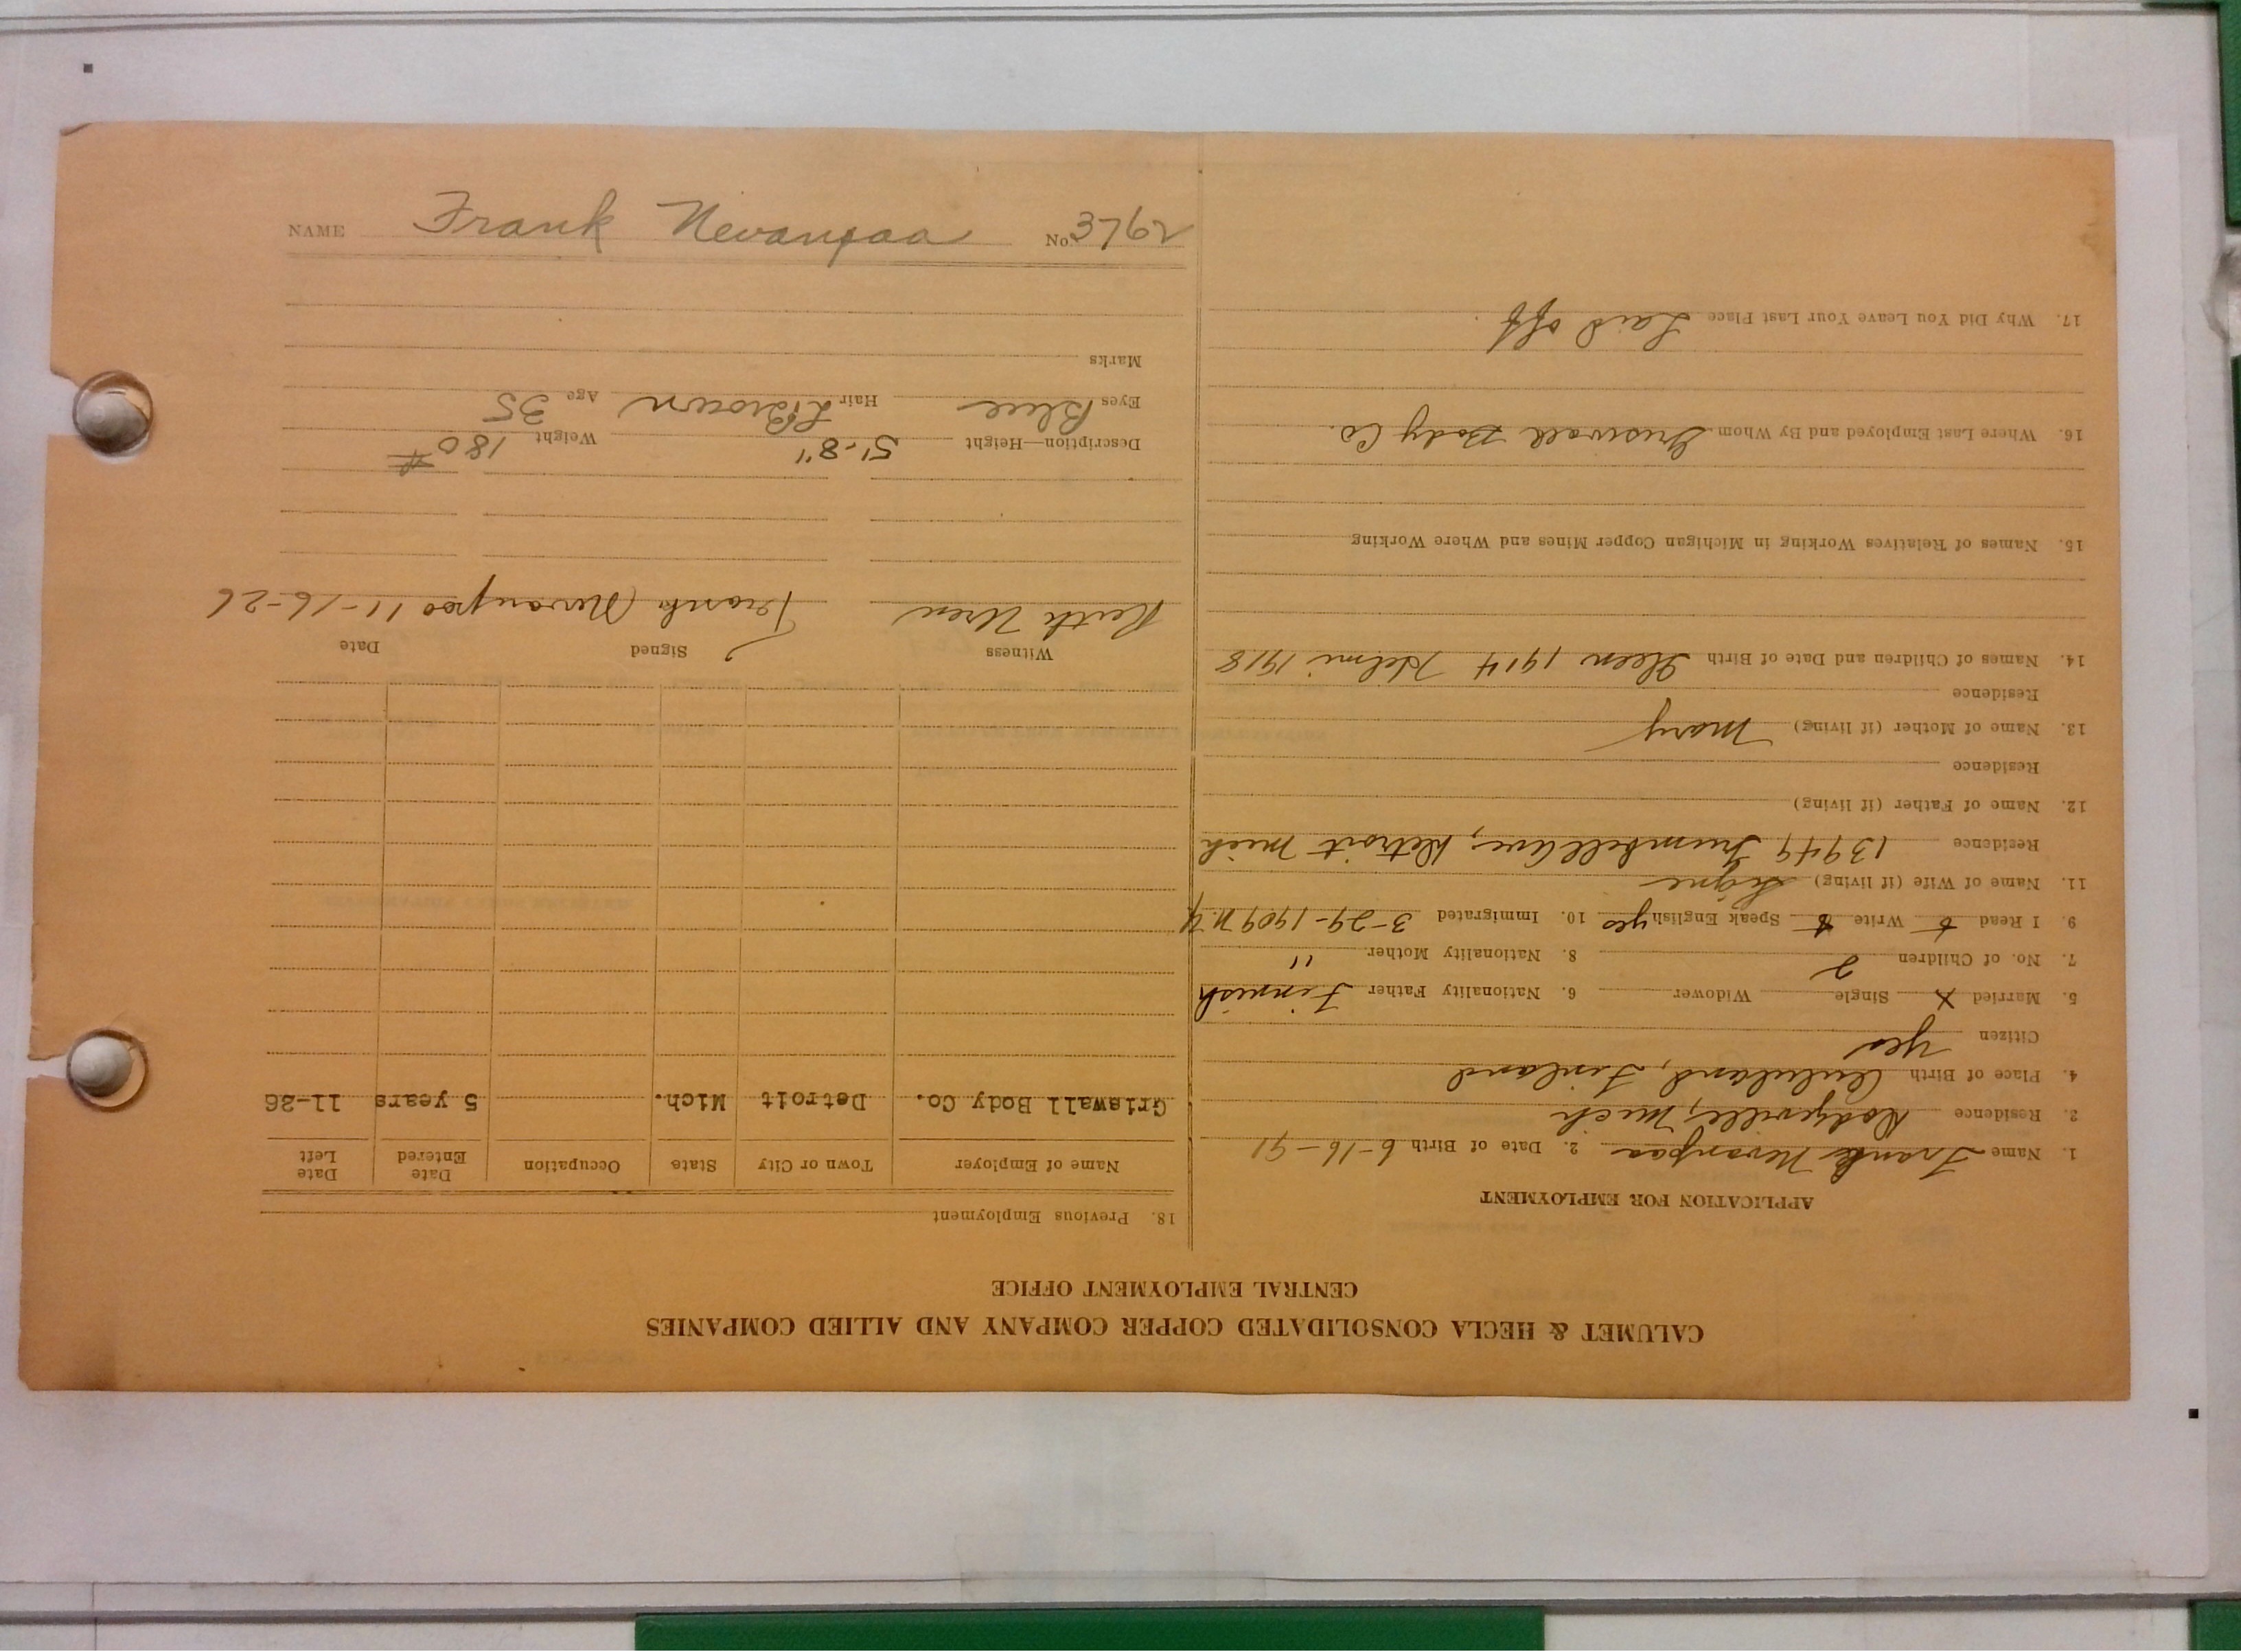 CALUMET & HECLA CONSOLIDATED COPPER COMPANY AND ALLIED COMPANIES
CENTRAL EMPLOYMENT OFFICE
APPLICATION FOR EMPLOYMENT
1. Name Frank Nevanpaa 2. Date of Birth 6-16-91
3. Residence Dodgeville, Mich
4. Place of Birth Finland
Citizen yes
5. Married X Single Widower 6. Nationality Father Finnish
7. No. of Children 2 8. Nationality Mother "
9. I Read Write Speak English yes 10. Immigrated 3-29-1909 N.Y
11. Name of Wife (if living) Signe
Residence 13949 Trumbell Ave, Detroit Mich
12. Name of Father (if living)
Residence
13. Name of Mother (if living) Mary
Residence
14. Names of Children and Date of Birth 1914 Helmi 1918
15. Names of Relatives Working in Michigan Copper Mines and Where Working
16. Where Last Employed and By Whom Griswall Body Co.
17. Why Did You Leave Your Last Place Laid off
18. Previous Employment
Name of Employer Town or City State Occupation Date Entered Date Left
Griswall Body Co. Detroit Mich. 5 years 11-26
Witness Signed Date
Keith Uren Frank Nevanpaa 11-16-26
Description—Height 5'-8" Weight 180 #
Eyes Blue Hair Lt Brown Age 35
Marks
NAME Frank Nevanpaa No 3762